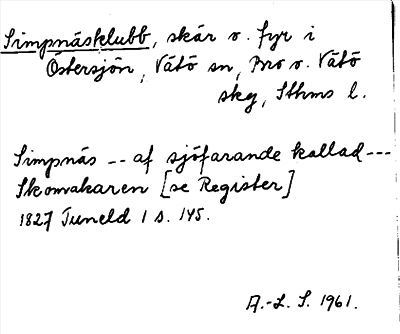 Simpnäsklubb, skär o. fyr i
Östersjön, Vätö sn, Bro o. Vätö
skg, Sthms l.
Simpnäs -- af sjöfarande kallad ---
Skomakaren [se Register]
1827 Tuneld 1 s. 145.
A.-L. S. 1961.